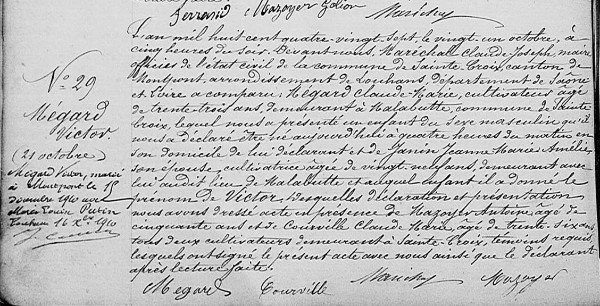 Ferrand Mazoyer
Maréchal
N° 29
Mégard
Victor
(21 octobre)
Mégard Victor, marié
à Menetreuil le 15
décembre 1910 avec
Marie Louise
16 Xe 1910
L'an mil huit cent quatre-vingt sept, le vingt-un octobre, à
cinq heures du soir. Devant nous, Maréchal Claude Joseph, maire
officier de l'état civil de la commune de Sainte Croix, canton de
Montpont, arrondissement de Louhans, département de Saône
et Loire a comparu: Mégard Claude-Marie, cultivateur âgé
de trente trois ans, demeurant à Malabutte, commune de Sainte
Croix, lequel nous a présenté un enfant du sexe masculin qu'il
nous a déclaré être né aujourd'hui à quatre heures du matin en
son domicile de lui déclarant et de Janin Jeanne Marie Amélie
son épouse, cultivatrice âgée de vingt-neuf ans, demeurant avec
lui audit lieu de Malabutte et auquel enfant il a donné le
prénom de Victor. Desquelles déclaration et présentation
nous avons dressé acte en présence de Mazoyer Antoine, âgé de
cinquante ans et de Courville Claude Marie, âgé de trente-six ans
tous deux cultivateurs demeurant à Sainte-Croix, témoins requis,
lesquels ont signé le présent acte avec nous ainsi que le déclarant
après lecture faite.
Mégard Courville Maréchal Mazoyer